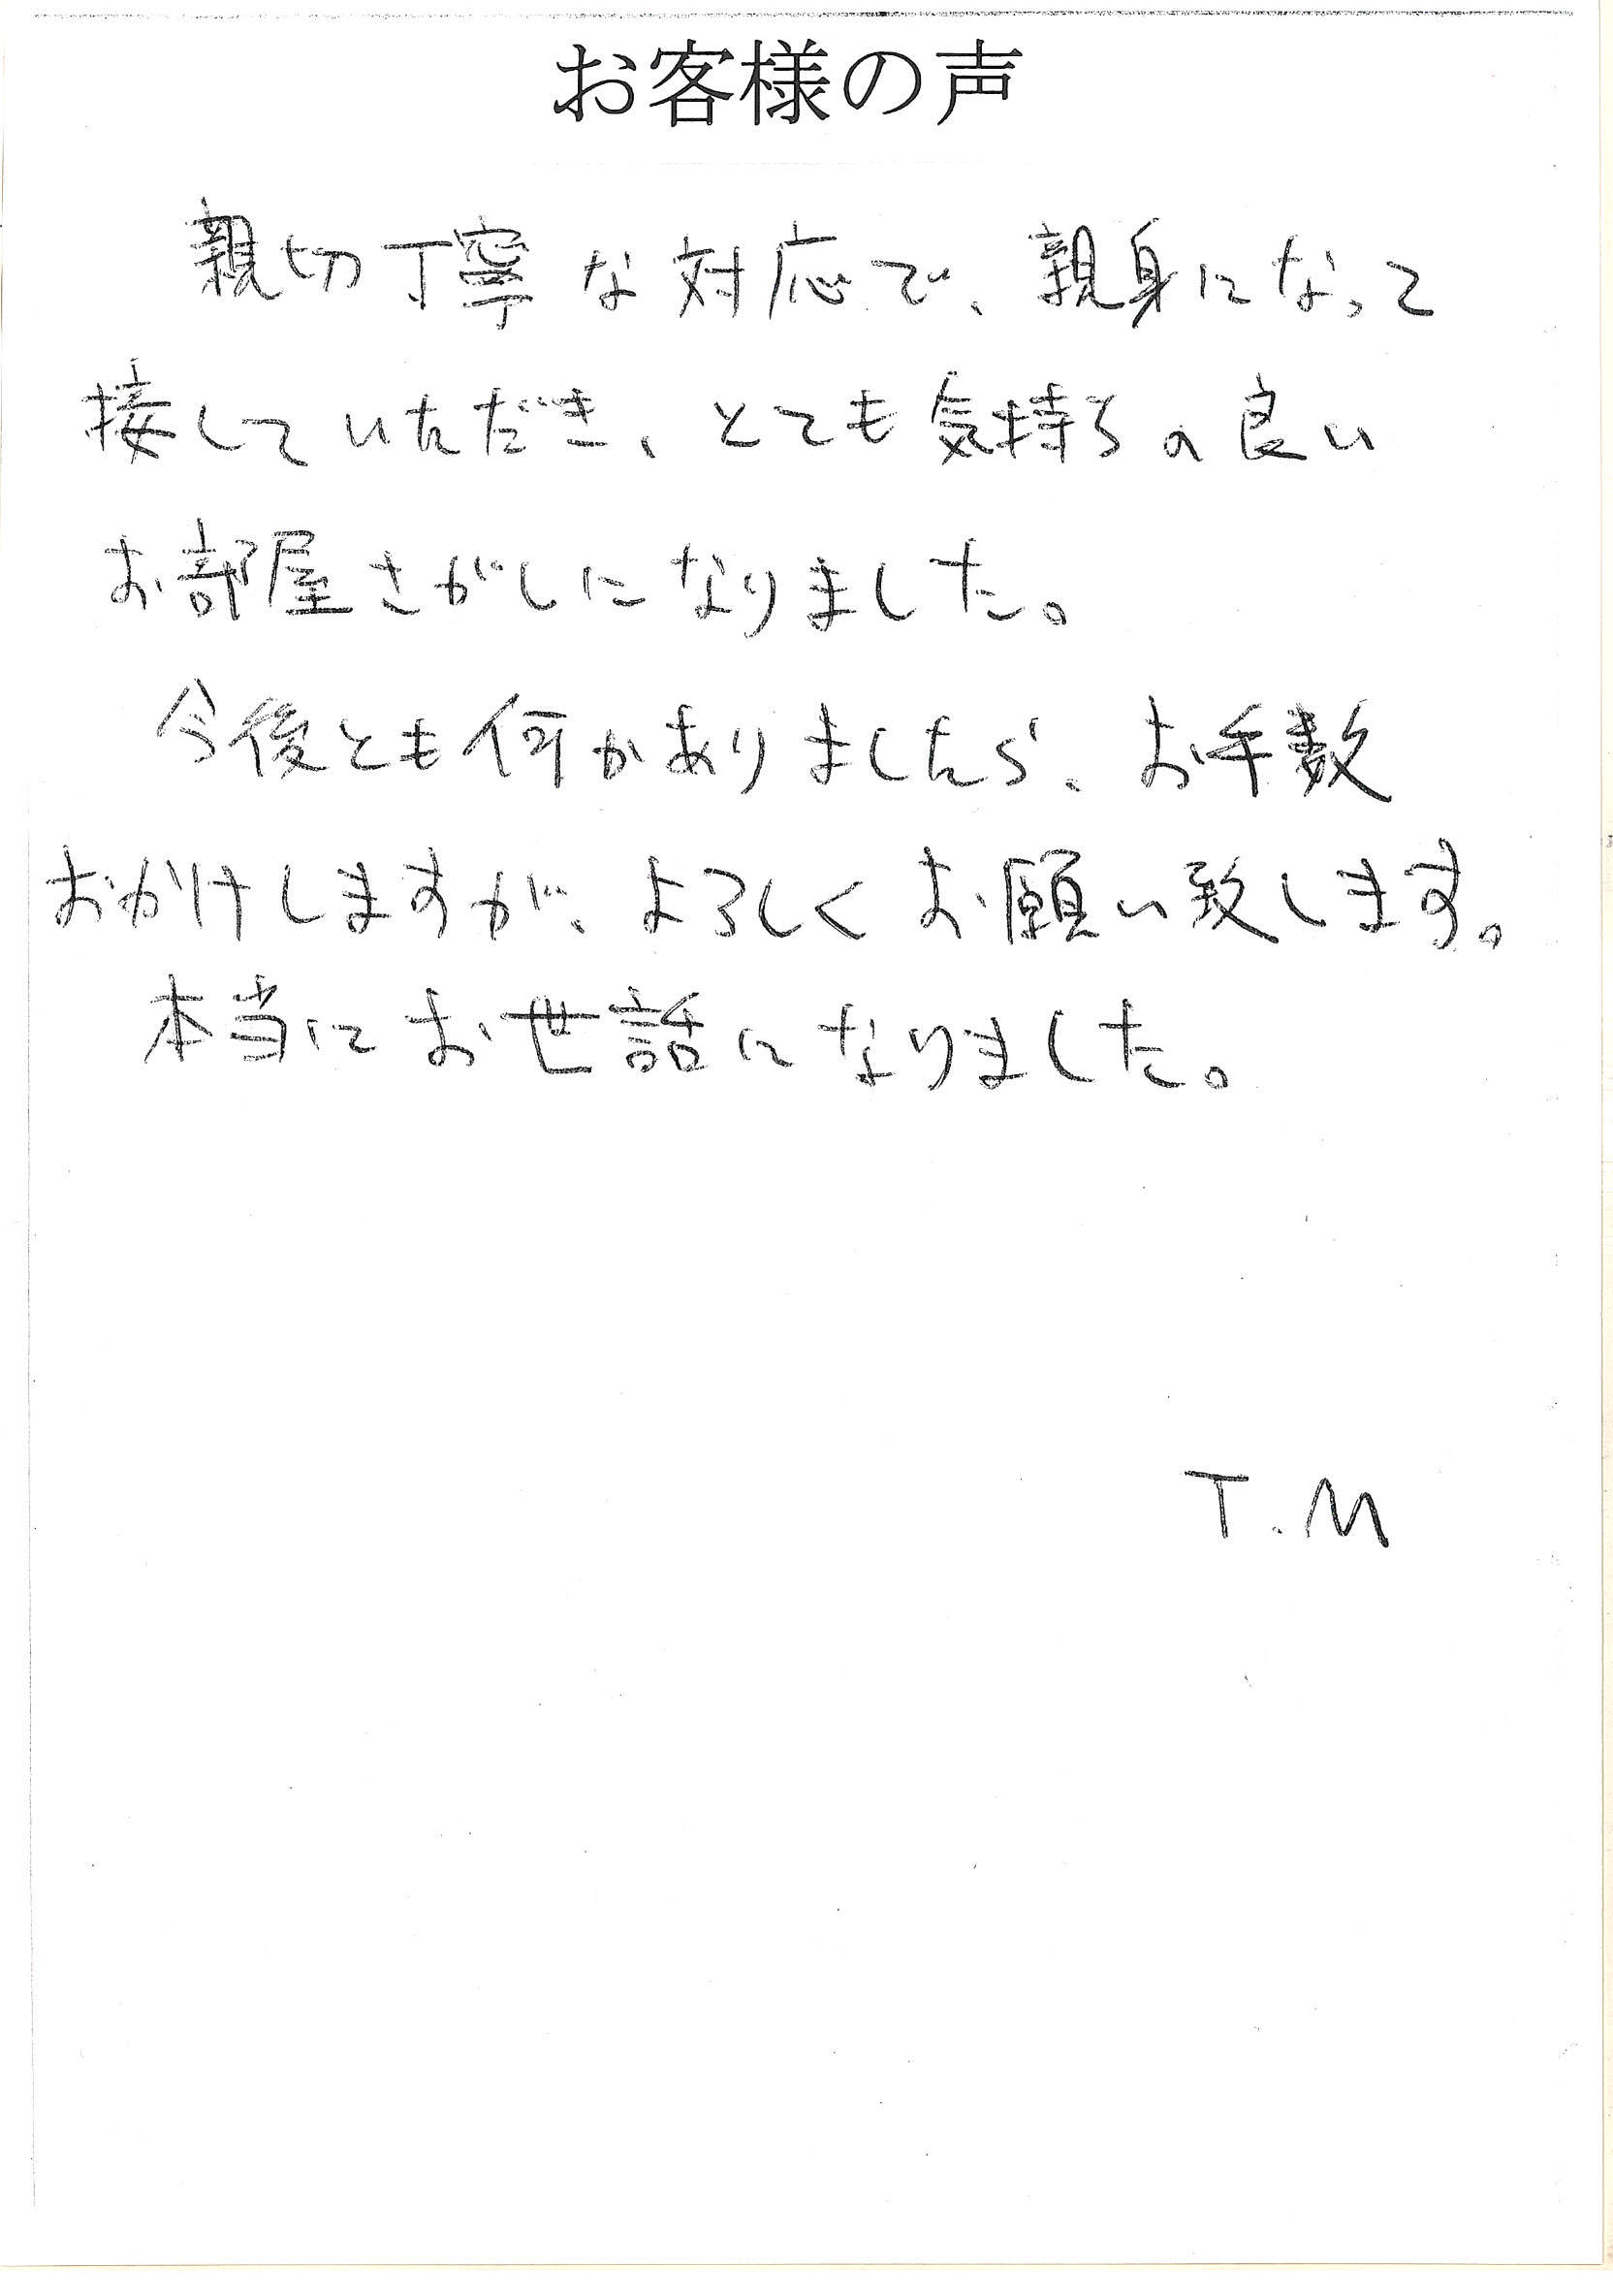 お客様の声
親切丁寧な対応で、親身になって
接していただき、とても気持ちの良い
お部屋さがしになりました。
今後とも何かありましたら、お手数
おかけしますが、よろしくお願い致します。
本当にお世話になりました。
T.M